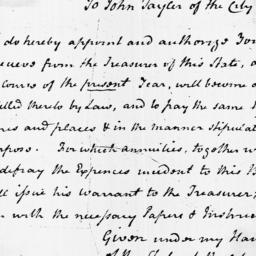 To John Tayler of the City
do hereby appoint and authorize You
receive from the Treasurer of this State, a
Course of the present Year, will become
led thereto by Law, and to pay the same
res and places & in the manner stipulat
pose. For which annuities, together w
defray the Expences incident to this B
ll issue his warrant to the Treasurer;
with the necessary Papers & Instruc
Given under my Han